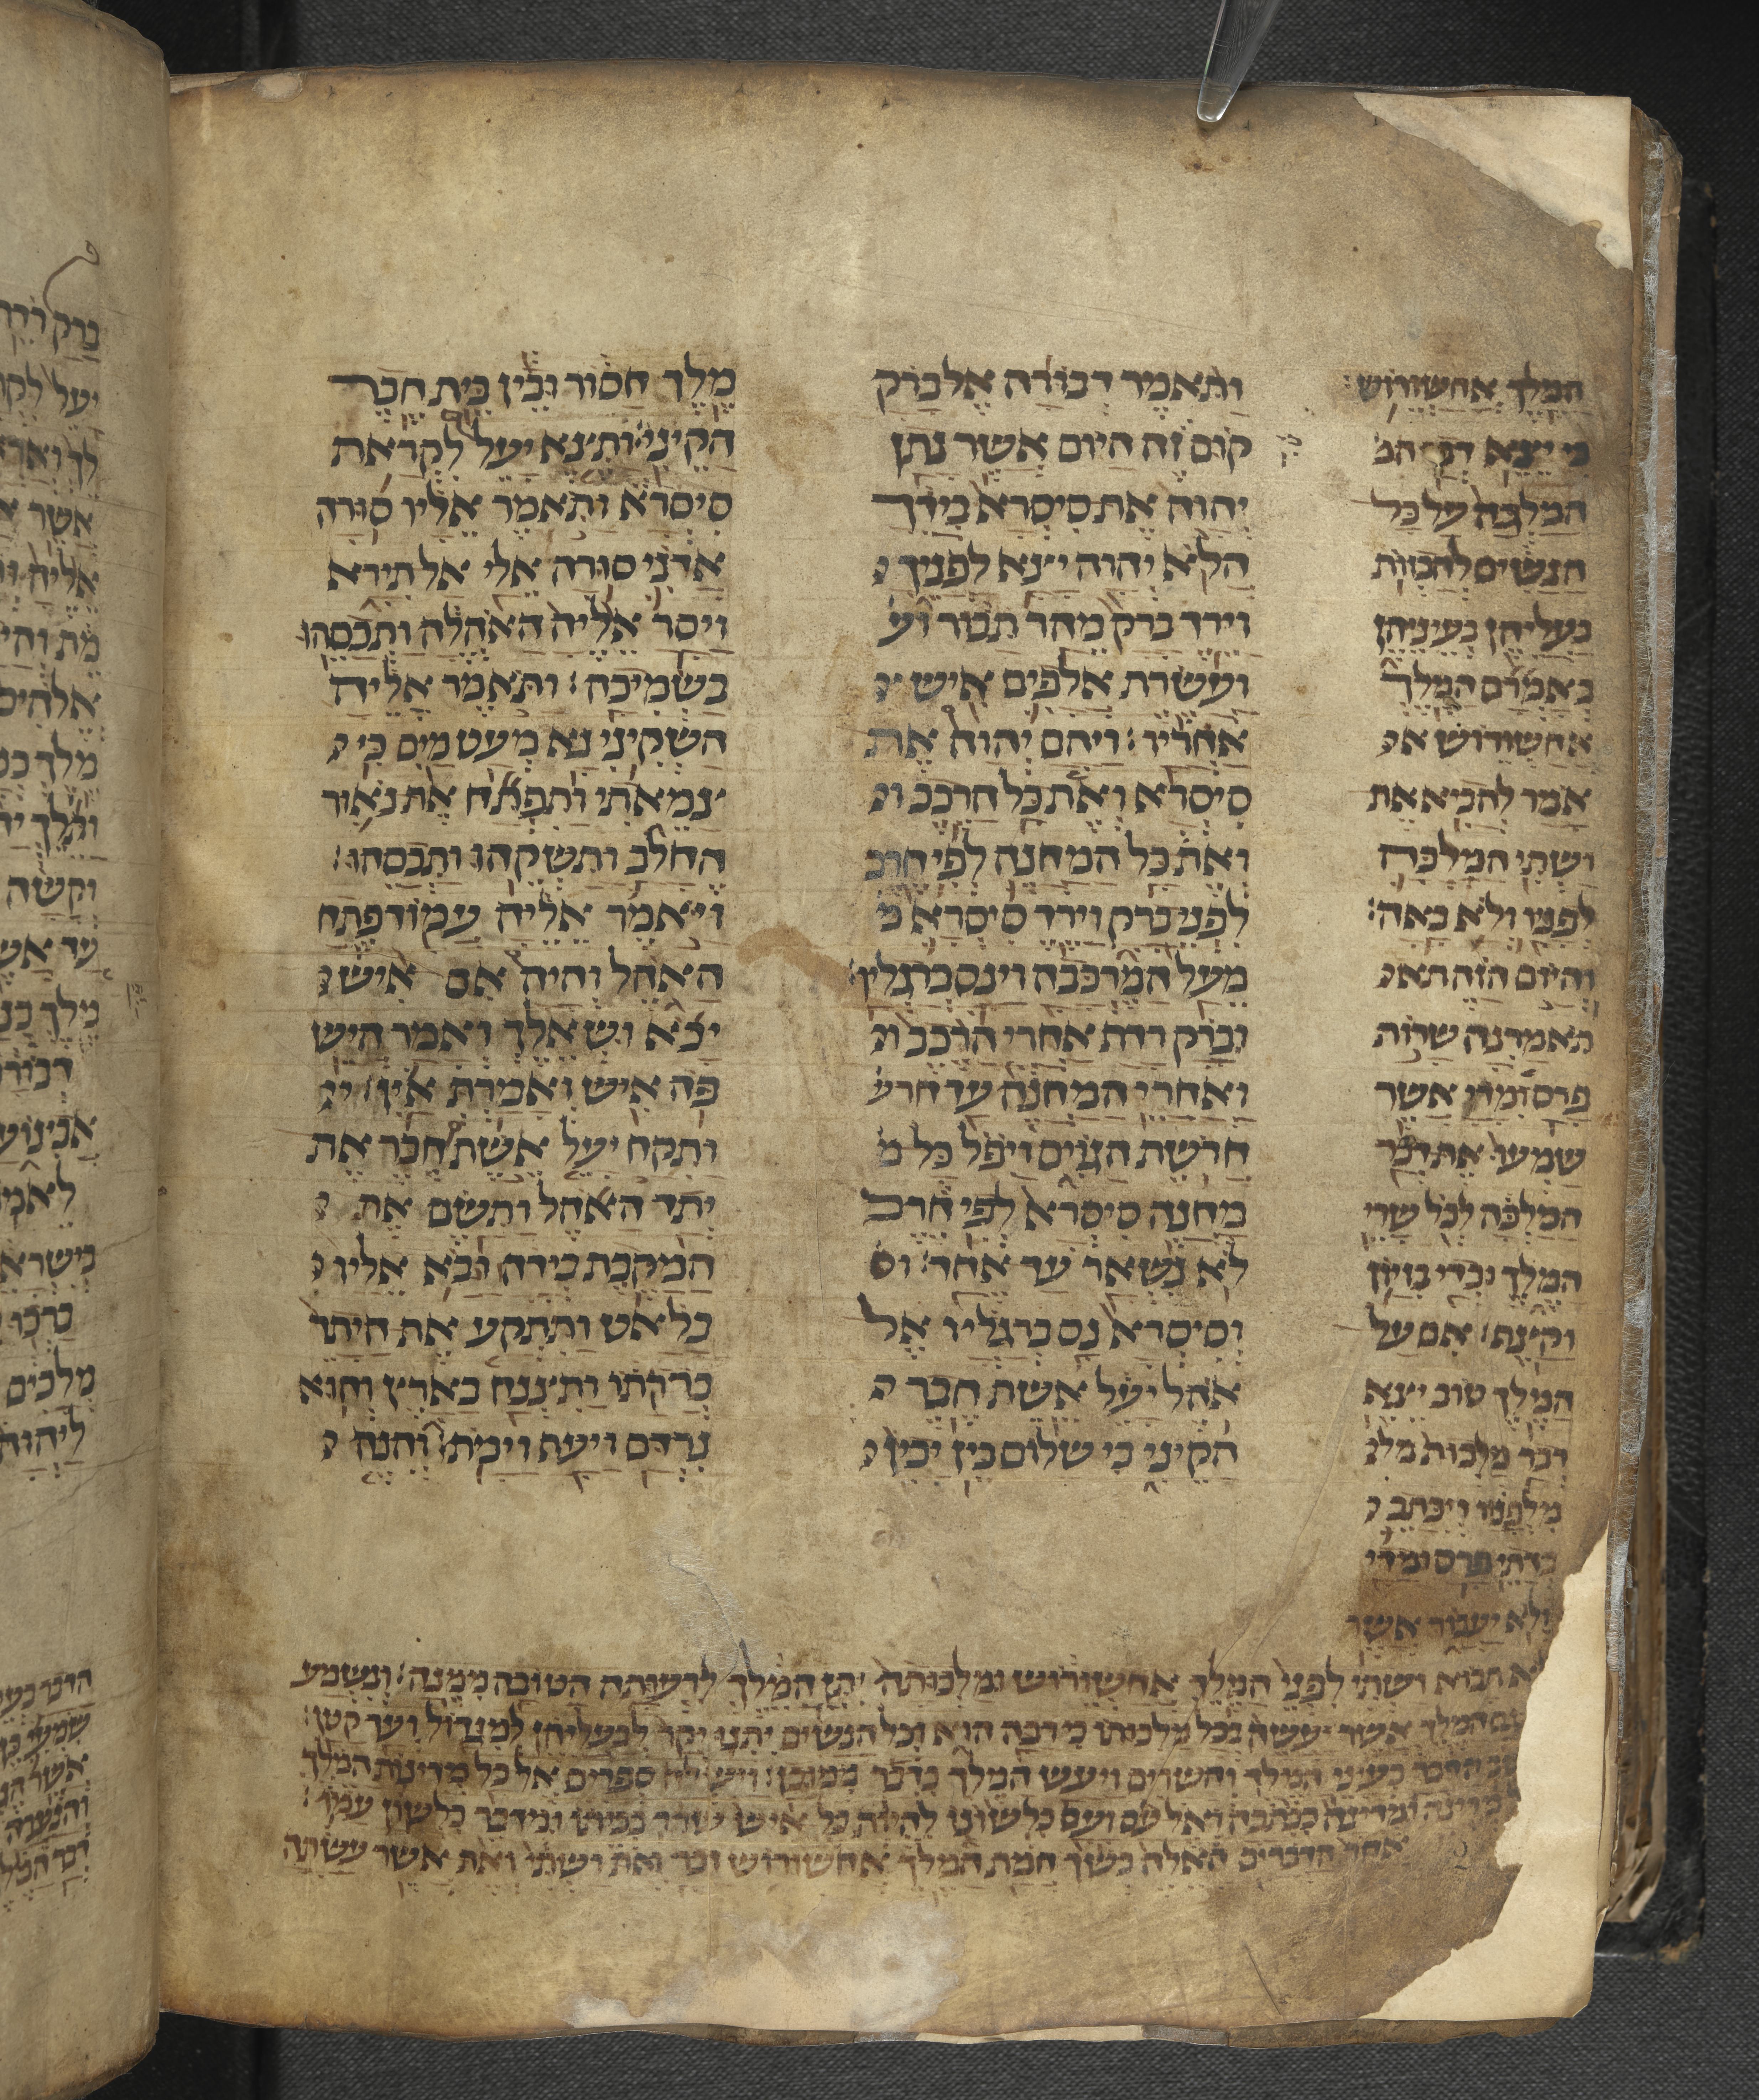 המלך אחשורוש:
כי יצא דבר המ
המלכה על כל
הנשים להבזות
בעליהן בעיניהן
באמרם המלך
אחשורוש א
אמר להביא את
ושתי המלכה
לפניו ולא באה:
והיום הזה תא
תאמרנה שרות
פרס ומדי אשר
שמעו את דבר
המלכה לכל שרי
המלך וכדי בזיון
וקצף: אם על
המלך טוב יצא
דבר מלכות מל
מלפניו ויכתב
בדתי פרס ומדי
ולא יעבור אשר
ותאמר דבורה אל ברק
קום זה היום אשר נתן
יהוה את סיסרא בידך
הלא יהוה יצא לפניך
וירד ברק מהר תבור וע
ועשרת אלפים איש
אחריו: ויהם יהוה את
סיסרא ואת כל הרכב ו
ואת כל המחנה לפי חרב
לפני ברק וירד סיסרא מ
מעל המרכבה וינס ברגליו:
וברק רדף אחרי הרכב ו
ואחרי המחנה עד חרש
חרשת הגוים ויפל כל מ
מחנה סיסרא לפי חרב
לא נשאר עד אחד: וס
וסיסרא נס ברגליו אל
אהל יעל אשת חבר ה
הקיני כי שלום בין יבין
מלך חסור ובין בית חבר
הקיני: ותצא יעל לקראת
סיסרא ותאמר אליו סורה
אדני סורה אלי אל תירא
ויסר אליה האהלה ותכסהו
בשמיכה: ותאמר אליה
השקיני נא מעט מים כי
צמאתי ותפתח את נאוד
החלב ותשקהו ותכסהו:
ויאמר אליה עמוד פתח
האהל והיה אם איש
יבא ושאלך ואמר היש
פה איש ואמרת אין:
ותקח יעל אשת חבר את
יתד האהל ותשם את
המקבת בידה ותבא אליו
בלאט ותתקע את היתד
ברקתו ותצנח בארץ והוא
נרדם ויעף וימת: והנה
לא תבוא ושתי לפני המלך אחשורוש ומלכותה יתן המלך לרעותה הטובה ממנה: ונשמע
פתגם המלך אשר יעשה בכל מלכותו כי רבה היא וכל הנשים יתנו יקר לבעליהן למגדול ועד קטן:
הדבר בעיני המלך והשרים ויעש המלך כדבר ממוכן: וישלח ספרים אל כל מדינות המלך
מדינה ומדינה ככתבה ואל עם ועם כלשונו להיות כל איש שרר בביתו ומדבר כלשון עמו:
אחר הדברים האלה כשך חמת המלך אחשורוש זכר את ושתי ואת אשר עשתה